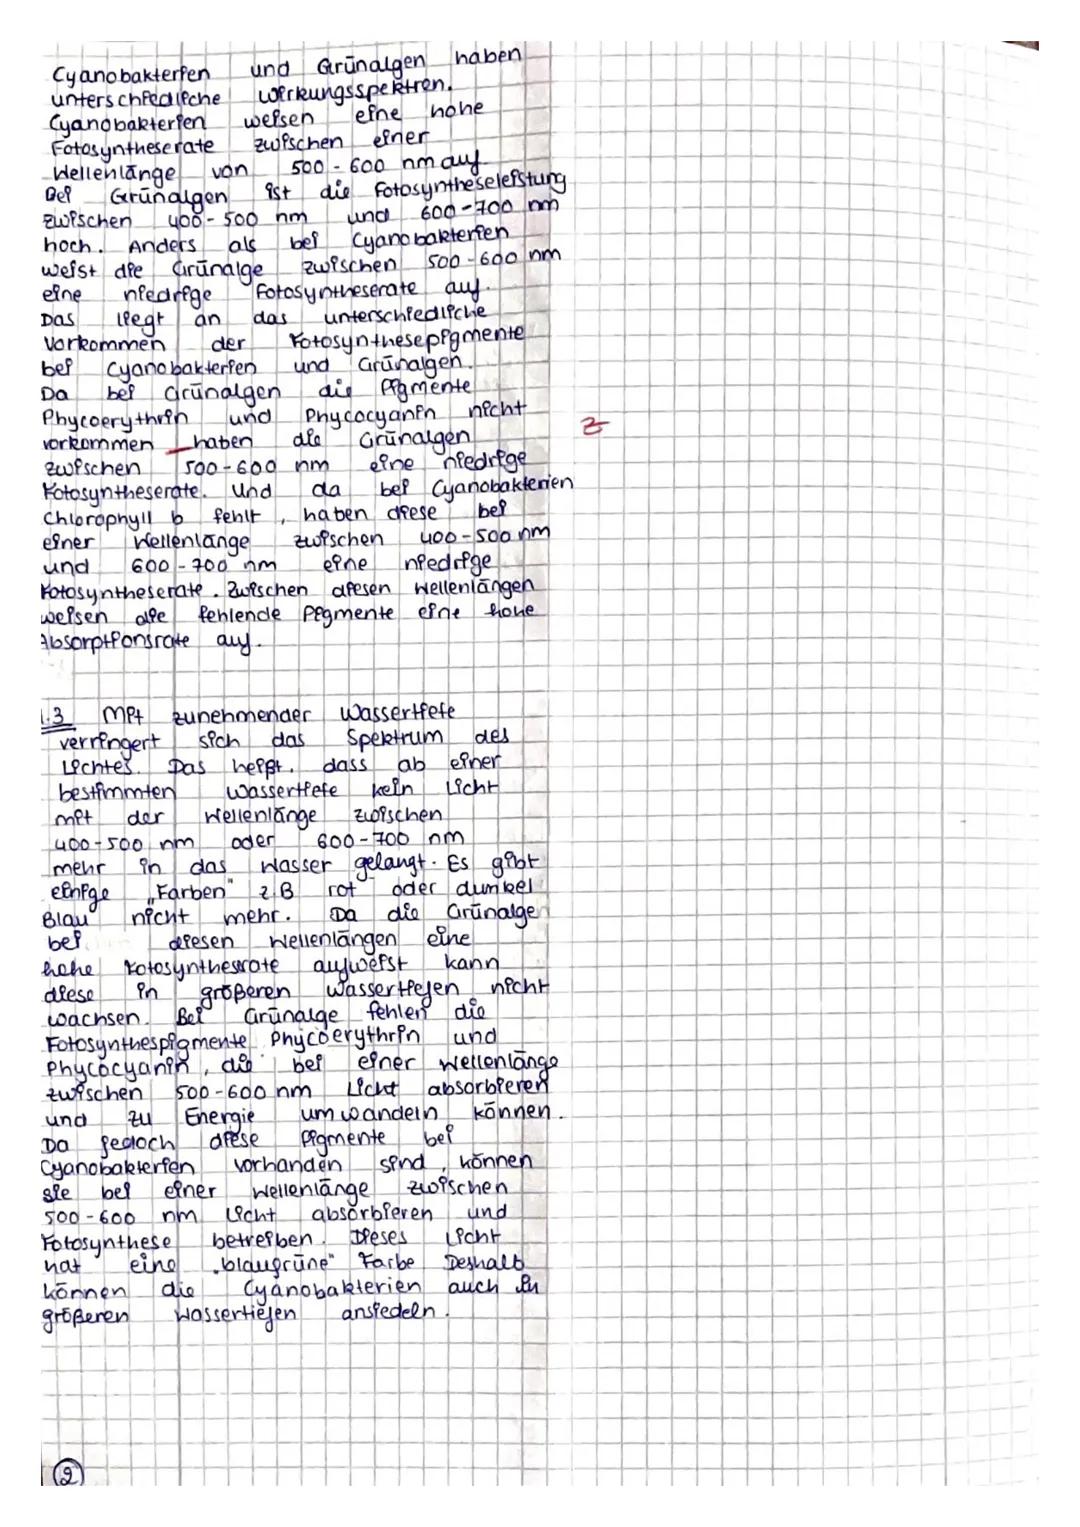 Cyanobakterien und Grünalgen haben
unterschiedliche Wirkungsspektren.
Cyanobakterien weisen eine hohe
Fotosyntheserate zwischen einer
Wellenlänge von 500-600 nm auf.
Bei Grünalgen ist die Fotosyntheseleistung
zwischen 400-500 nm und 600-700 nm
hoch. Anders als bei Cyanobakterien
weist die Grünalge zwischen 500-600 nm
eine niedrige Fotosyntheserate auf.
Das liegt an das unterschiedliche
Vorkommen der Fotosynthesepigmente
bei Cyanobakterien und Grünalgen.
Da bei Grünalgen die Pigmente
Phycoerythrin und Phycocyanin nicht
vorkommen haben die Grünalgen
Z
zwischen 500-600 nm eine niedrige
Fotosyntheserate. Und da bei Cyanobakterien
Chlorophyll b fehlt, haben diese bei
einer Wellenlänge zwischen 400-500 nm
und 600-700 nm eine niedrige
Fotosyntheserate. Zwischen diesen Wellenlängen
weisen die fehlende Pigmente eine hohe
Absorptionsrate auf.
1.3 Mit zunehmender Wassertiefe
verringert sich das Spektrum des
Lichtes. Das heißt, dass ab einer
bestimmten Wassertiefe kein Licht
mit der Wellenlänge zwischen
400-500 nm oder 600-700 nm
mehr in das Wasser gelangt. Es gibt
einige „Farben" z.B rot oder dunkel
Blau nicht mehr. Da die Grünalge
bei diesen Wellenlängen eine
hohe Fotosynthesrate aufweist kann
diese in größeren Wassertiefen nicht
wachsen. Bei Grünalge fehlen die
Fotosynthespigmente Phycoerythrin und
Phycocyanin, die bei einer Wellenlänge
zwischen 500-600 nm Licht absorbieren
und zu Energie umwandeln können.
Da jedoch diese Pigmente bei
Cyanobakterien vorhanden sind, können
sie bei einer Wellenlänge zwischen
500-600 nm Licht absorbieren und
Fotosynthese betreiben. Dieses Licht
hat eine „blaugrüne" Farbe Deshalb
können die Cyanobakterien auch in
größeren Wassertiefen ansiedeln.
2